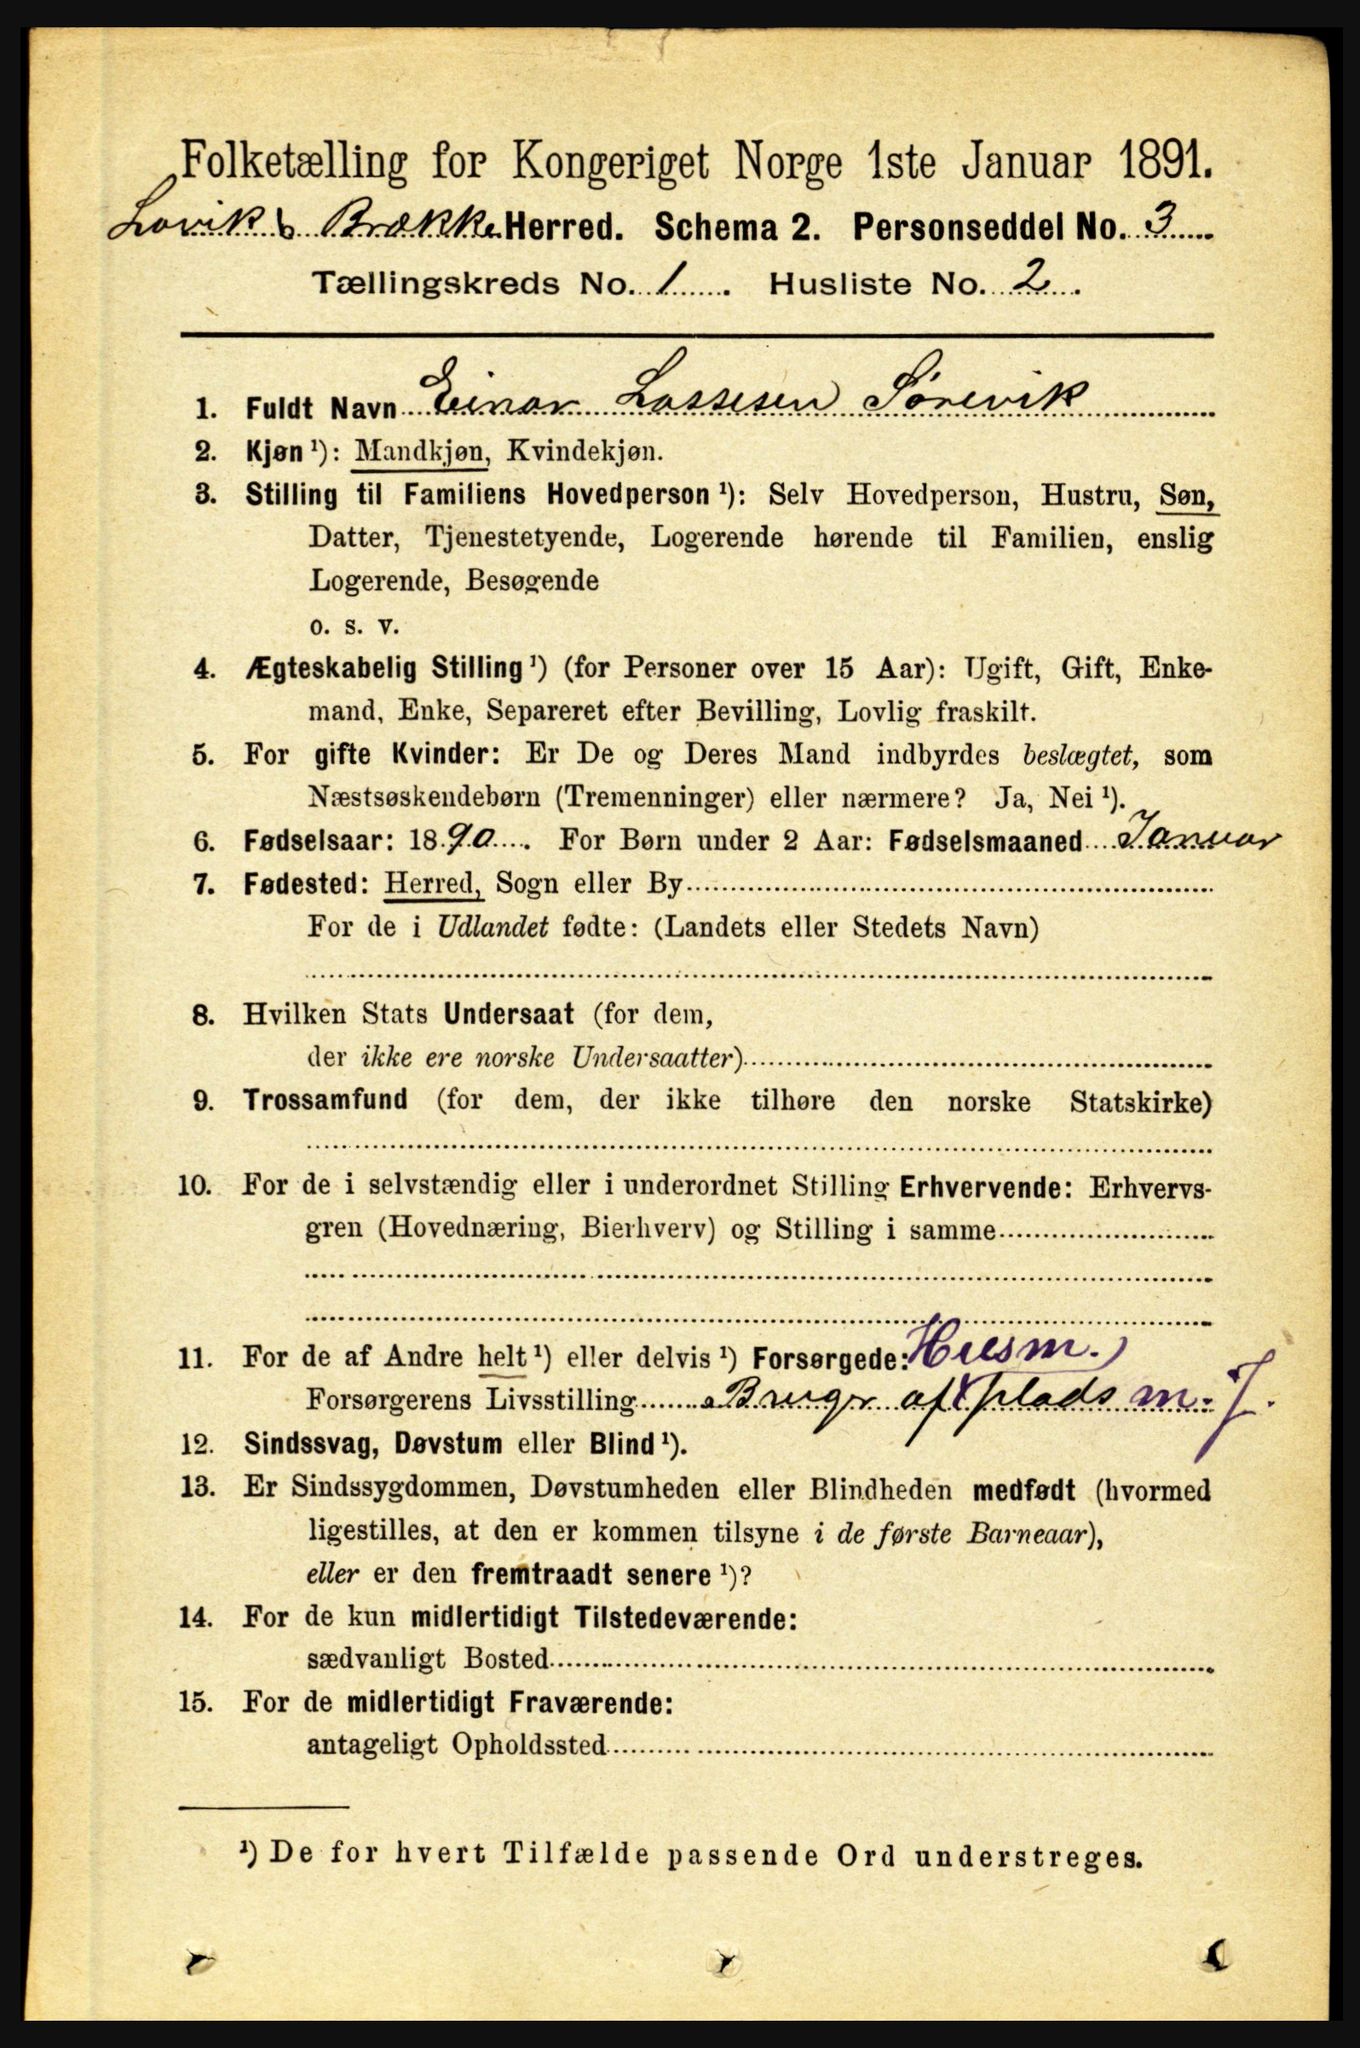 Folketælling for Kongeriget Norge 1ste Januar 1891.
Lavik & Brække Herred. Schema 2. Personseddel No. 3
Tællingskreds No. 1. Husliste No. 2.
1. Fuldt Navn Einar Lassesen Sørevik
2. Kjøn ¹): Mandkjøn, Kvindekjøn.
3. Stilling til Familiens Hovedperson ¹): Selv Hovedperson, Hustru, Søn,
Datter, Tjenestetyende, Logerende hørende til Familien, enslig
Logerende, Besøgende
o. s. v.
4. Ægteskabelig Stilling ¹) (for Personer over 15 Aar): Ugift, Gift, Enke-
mand, Enke, Separeret efter Bevilling, Lovlig fraskilt.
5. For gifte Kvinder: Er De og Deres Mand indbyrdes beslægtet, som
Næstsøskendebørn (Tremenninger) eller nærmere? Ja, Nei ¹).
6. Fødselsaar: 1890. For Børn under 2 Aar: Fødselsmaaned Januar
7. Fødested: Herred, Sogn eller By
For de i Udlandet fødte: (Landets eller Stedets Navn)
8. Hvilken Stats Undersaat (for dem,
der ikke ere norske Undersaatter)
9. Trossamfund (for dem, der ikke tilhøre den norske Statskirke)
10. For de i selvstændig eller i underordnet Stilling Erhvervende: Erhvervs-
gren (Hovednæring, Bierhverv) og Stilling i samme
11. For de af Andre helt ¹) eller delvis ¹) Forsørgede: Husm.)
Forsørgerens Livsstilling Bruger af plads m. J.
12. Sindssvag, Døvstum eller Blind ¹).
13. Er Sindssygdommen, Døvstumheden eller Blindheden medfødt (hvormed
ligestilles, at den er kommen tilsyne i de første Barneaar),
eller er den fremtraadt senere ¹)?
14. For de kun midlertidigt Tilstedeværende:
sædvanligt Bosted
15. For de midlertidigt Fraværende:
antageligt Opholdssted
¹) De for hvert Tilfælde passende Ord understreges.